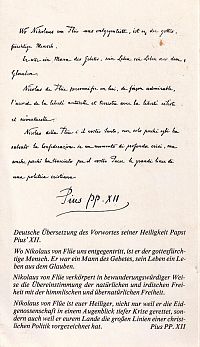 Wo Nikolaus von Flüe uns entgegentritt, ist er der gottes-
fürchtige Mensch.
Er war ein Mann des Gebetes, sein Leben ein Leben aus dem
Glauben.
Nicolas de Flüe personnifie en lui, de façon admirable,
l'accord de la liberté naturelle et terrestre avec la liberté céleste
et surnaturelle.
Nicolao della Flüe è il vostro Santo, non solo perchè egli ha
salvato la Confederazione in un momento di profonda crisi, ma
anche perchè ha tracciato per il vostro Paese le grandi linee di
una politica cristiana.
Pius PP. XII
Deutsche Übersetzung des Vorwortes seiner Heiligkeit Papst
Pius' XII.
Wo Nikolaus von Flüe uns entgegentritt, ist er der gottesfürch-
tige Mensch. Er war ein Mann des Gebetes, sein Leben ein Le-
ben aus dem Glauben.
Nikolaus von Flüe verkörpert in bewunderungswürdiger Wei-
se die Übereinstimmung der natürlichen und irdischen Frei-
heit mit der himmlischen und übernatürlichen Freiheit.
Nikolaus von Flüe ist euer Heiliger, nicht nur weil er die Eid-
genossenschaft in einem Augenblick tiefer Krise gerettet, son-
dern auch weil er eurem Lande die großen Linien einer christli-
chen Politik vorgezeichnet hat. Pius PP. XII